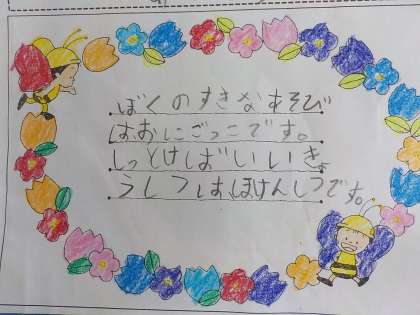 ぼくのすきなあそび
はおにごっこです。
しっとけばいいき
ょうしつはほけんしつです。